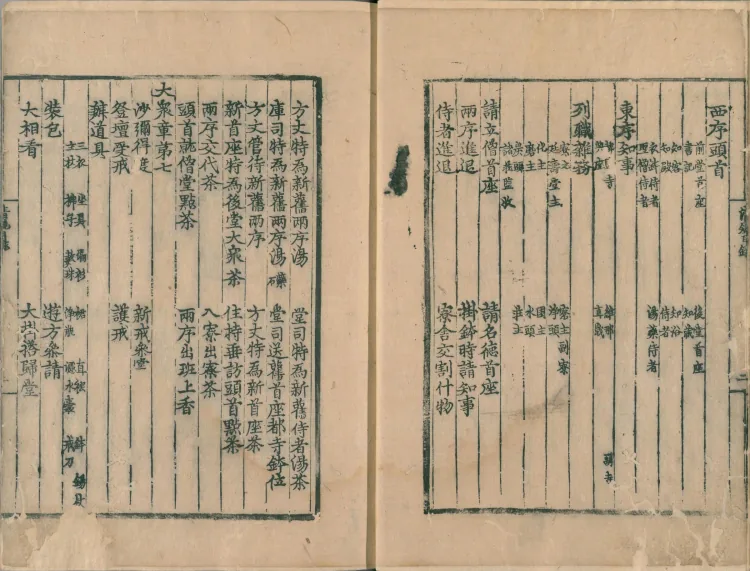 西序頭首
前堂首座 後堂首座
書記 知藏
知客 知浴
知殿 侍者
衣鉢侍者 湯藥侍者
聖僧侍者
東序知事
都寺 維那
直歲
列職雜務
寮元 寮主副寮
延壽堂主 淨頭
化主 園主
水頭
莊主
諸莊監收
請立僧首座 請名德首座
兩序進退 掛鉢時請知事
侍者進退 寮舍交割什物
方丈特為新舊兩序湯 堂司特為新舊侍者湯茶
庫司特為新舊兩序湯 堂司送舊首座都寺鉢位
方丈管待新舊兩序 方丈特為新首座茶
新首座特為後堂大衆茶 住持垂訪頭首點茶
兩序交代茶 入寮出寮茶
頭首就僧堂點茶 兩序出班上香
大衆章第七
沙彌得度 新戒參堂
登壇受戒 護戒
辦道具
三衣 坐具 偏衫 裙 直裰 鉢 錫杖
主杖 拂子 數珠 淨瓶 濾水囊 戒刀
裝包 遊方參請
大相看 大掛搭歸堂